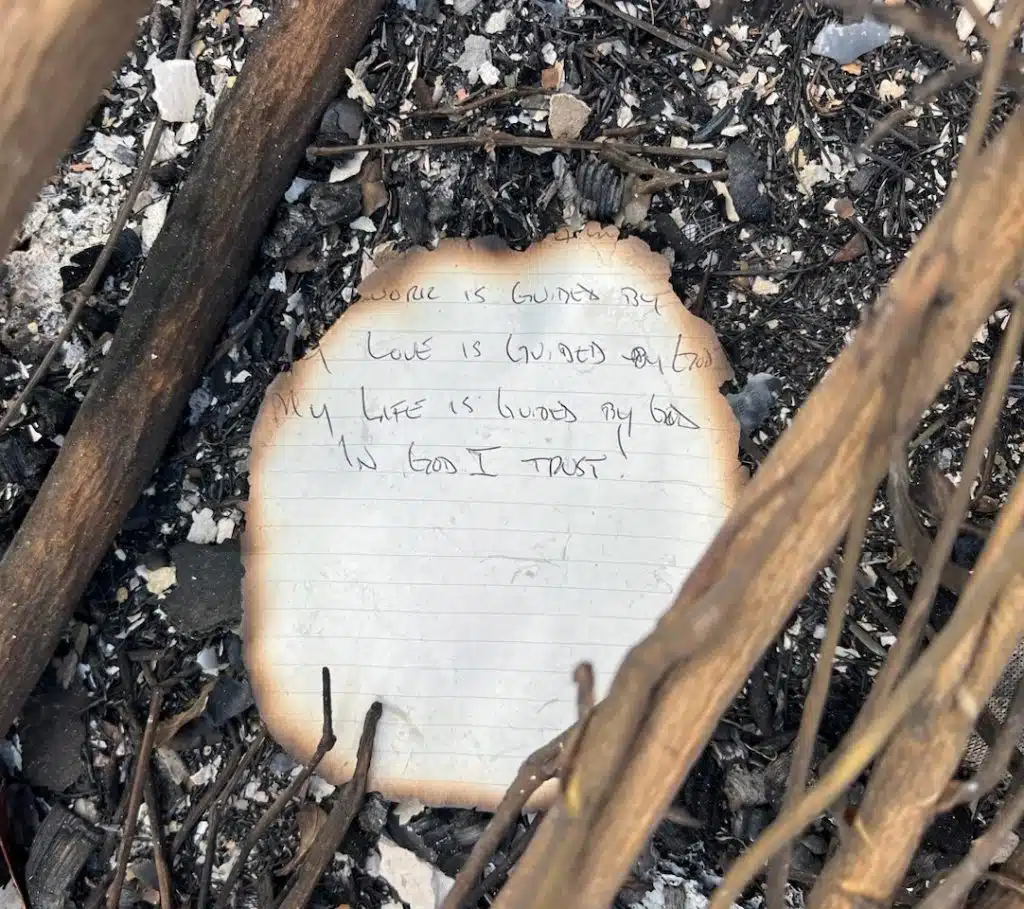 WORK IS GUIDED BY
Y LOVE IS GUIDED BY GOD
MY LIFE IS GUIDED BY GOD
IN GOD I TRUST!